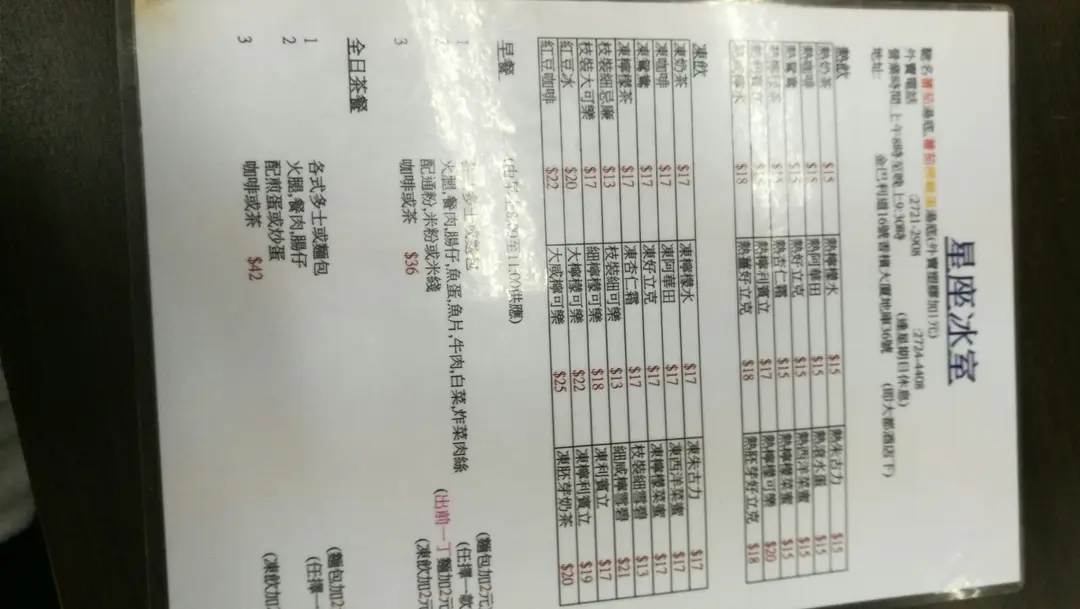 星座冰室
馳名蕃茄湯底,蕃茄湯底(外賣盛膠加1元)
外賣電話 :2721-2908 :2724-4408
營業時間 上午8時至晚上9:30時 (逢星期日休息)
地址: 金巴利道16號香檳大廈地庫36號 (即大都酒店下)
熱飲
熱奶茶 $15 熱檸檬水 $15 熱朱古力 $15
熱咖啡 $15 熱阿華田 $15 熱滾水蛋 $15
熱鴛鴦 $15 熱好立克 $15 熱西洋菜蜜 $15
熱檸檬茶 $15 熱杏仁霜 $15 熱檸檬菜蜜 $15
熱檸利賓立 $17 熱檸檬可樂 $20
$18 熱蕃好立克 $18 熱胚芽好立克 $18
凍飲
凍奶茶 $17 凍檸檬水 $17 凍朱古力 $17
凍咖啡 $17 凍阿華田 $17 凍西洋菜蜜 $17
凍鴛鴦 $17 凍好立克 $17 凍檸檬菜蜜 $17
凍檸檬茶 $17 凍杏仁霜 $17 枝裝細雪碧 $13
枝裝細忌廉 $13 枝裝細可樂 $13 細咸檸雪碧 $21
枝裝大可樂 $17 細檸檬可樂 $18 凍利賓立 $17
紅豆冰 $20 大檸檬可樂 $22 凍檸利賓立 $19
紅豆咖啡 $22 大咸檸可樂 $25 凍胚芽奶茶 $20
早餐 至11:00供應)
1 多士或麵包 (麵包加2元)
2 火腿,餐肉,腸仔,魚蛋,魚片,牛肉,白菜,炸菜肉絲 (任擇一款
配通粉,米粉或米綫 (出前一丁麵加2元
3 咖啡或茶 $36 (凍飲加2元
全日茶餐
1 各式多士或麵包 (麵包加2
2 火腿,餐肉,腸仔 (任擇一
配煎蛋或炒蛋
3 咖啡或茶 $42 (凍飲加2